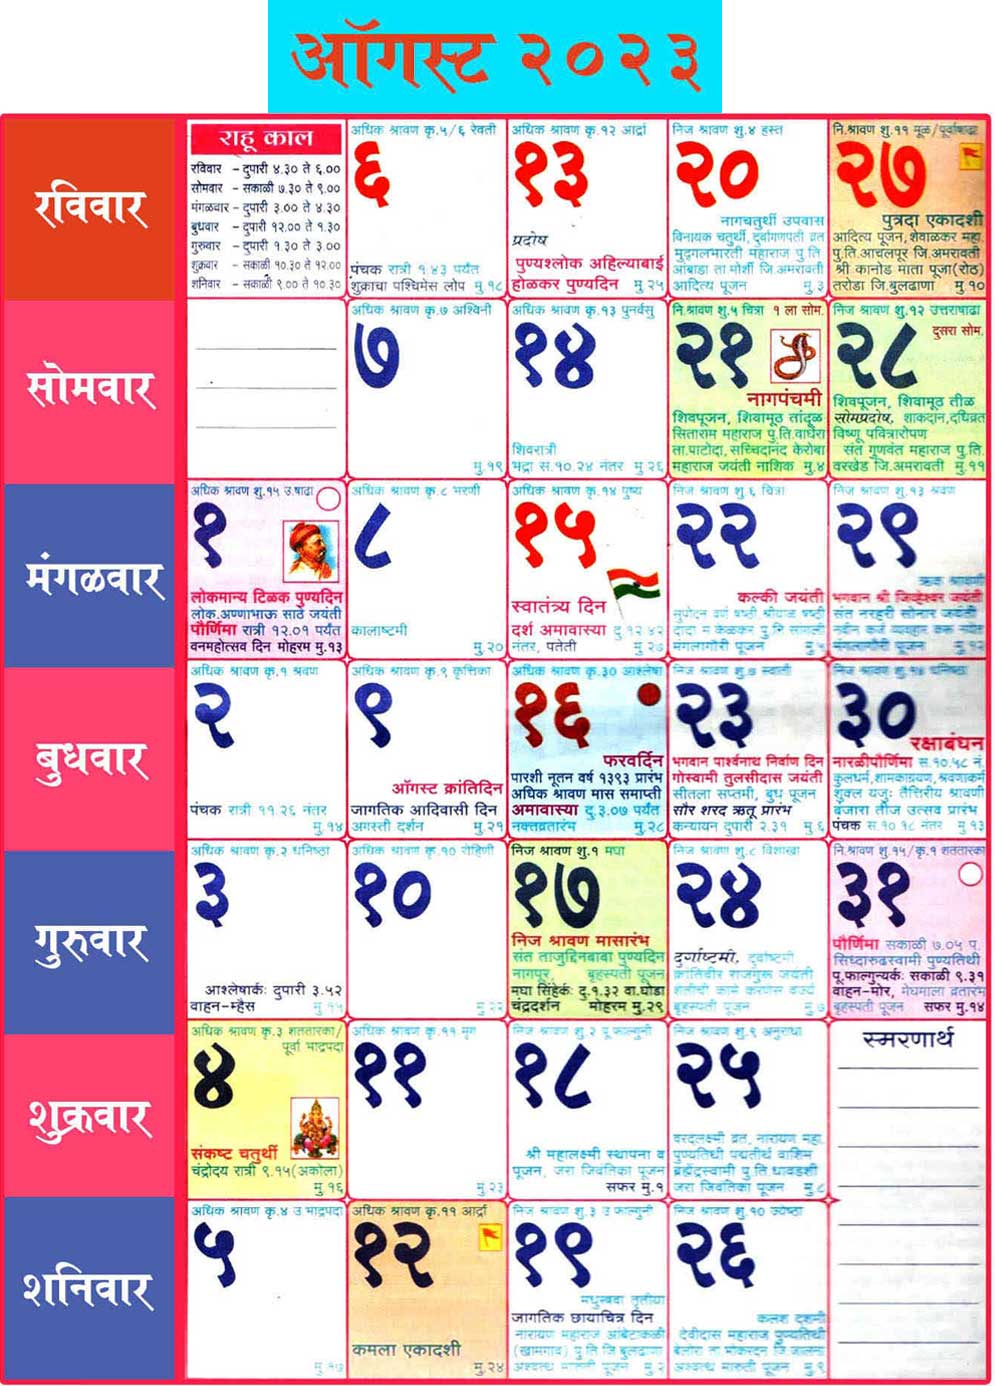 ऑगस्ट २०२३
रविवार
राहू काल
रविवार – दुपारी ४.३० ते ६.००
सोमवार – सकाळी ७.३० ते ९.००
मंगळवार – दुपारी ३.०० ते ४.३०
बुधवार – दुपारी १२.०० ते १.३०
गुरुवार – दुपारी १.३० ते ३.००
शुक्रवार – सकाळी १०.३० ते १२.००
शनिवार – सकाळी ९.०० ते १०.३०
अधिक श्रावण कृ.५/६ रेवती
६
पंचक रात्री १.४३ पर्यंत
शुक्राचा पश्चिमेस लोप मु.१८
अधिक श्रावण कृ.१२ आर्द्रा
१३
प्रदोष
पुण्यश्लोक अहिल्याबाई
होळकर पुण्यदिन मु.२५
निज श्रावण शु.४ हस्त
२०
नागचतुर्थी उपवास
विनायक चतुर्थी, दुर्वागणपती व्रत
मुद्गलभारती महाराज पु.ति
आंबाडा ता मोर्शी जि.अमरावती
आदित्य पूजन मु.३
नि.श्रावण शु.११ मूळ/पूर्वाषाढा
२७
पुत्रदा एकादशी
आदित्य पूजन, शेवाळकर महा.
पु.ति.आचलपूर जि.अमरावती
श्री कानोड माता पूजा(रोठ)
तरोडा जि.बुलढाणा मु.१०
सोमवार
अधिक श्रावण कृ.७ अश्विनी
७
मु.१९
अधिक श्रावण कृ.१३ पुनर्वसु
१४
शिवरात्री
भद्रा स.१०.२४ नंतर मु.२६
नि.श्रावण शु.५ चित्रा १ ला सोम.
२१
नागपंचमी
शिवपूजन, शिवामूठ तांदूळ
सिताराम महाराज पु.ति.वाघेरा
ता.पाटोदा, सच्चिदानंद केरोबा
महाराज जयंती नाशिक मु.४
निज श्रावण शु.१२ उत्तराषाढा
दुसरा सोम.
२८
शिवपूजन, शिवामूठ तीळ
सोमप्रदोष, शाकदान,दधिव्रत
विष्णू पवित्रारोपण
संत गुणवंत महाराज पु.ति.
वरखेड जि.अमरावती मु.११
मंगळवार
अधिक श्रावण शु.१५ उ.षाढा
१
लोकमान्य टिळक पुण्यदिन
लोक.अण्णाभाऊ साठे जयंती
पौर्णिमा रात्री १२.०१ पर्यंत
वनमहोत्सव दिन मोहरम मु.१३
अधिक श्रावण कृ.८ भरणी
८
कालाष्टमी
मु.२०
अधिक श्रावण कृ.१४ पुष्य
१५
स्वातंत्र्य दिन
दर्श अमावास्या दु.१२.४२
नंतर, पतेती मु.२७
निज श्रावण शु.६ चित्रा
२२
कल्की जयंती
मंगलागौरी पूजन मु.५
निज श्रावण शु.१३ श्रवण
२९
ऋक श्रावणी
भगवान श्री जिव्हेश्वर जयंती
संत नरहरी सोनार जयंती
मंगलागौरी पूजन मु.१२
बुधवार
अधिक श्रावण कृ.१ श्रवण
२
पंचक रात्री ११.२६ नंतर
मु.१४
अधिक श्रावण कृ.९ कृत्तिका
९
ऑगस्ट क्रांतिदिन
जागतिक आदिवासी दिन
अगस्ती दर्शन मु.२१
अधिक श्रावण कृ.३० आश्लेषा
१६
फरवर्दिन
पारशी नूतन वर्ष १३९३ प्रारंभ
अधिक श्रावण मास समाप्ती
अमावास्या दु.३.०७ पर्यंत
नक्तव्रतारंभ मु.२८
निज श्रावण शु.७ स्वाती
२३
भगवान पार्श्वनाथ निर्वाण दिन
गोस्वामी तुलसीदास जयंती
सीतला सप्तमी, बुध पूजन
सौर शरद ऋतू प्रारंभ
कन्यायन दुपारी २.३१ मु.६
निज श्रावण शु.१४ धनिष्ठा
३०
रक्षाबंधन
नारळीपौर्णिमा स.१०.५८ नं.
कुलधर्म,शामकाग्रयण, श्रवणाकर्म
शुक्ल यजुः तैत्तिरीय श्रावणी
बंजारा तीज उत्सव प्रारंभ
पंचक स.१०.१८ नंतर मु.१३
गुरुवार
अधिक श्रावण कृ.२ धनिष्ठा
३
आश्लेषार्कः दुपारी ३.५२
वाहन–म्हैस मु.१५
अधिक श्रावण कृ.१० रोहिणी
१०
मु.२२
निज श्रावण शु.१ मघा
१७
निज श्रावण मासारंभ
संत ताजुद्दिनबाबा पुण्यदिन
नागपूर, बृहस्पती पूजन
मघा सिंहेर्कः दु.१.३२ वा.घोडा
चंद्रदर्शन मोहरम मु.२९
निज श्रावण शु.८ विशाखा
२४
दुर्गाष्टमी, दुर्वाष्टमी
क्रांतिवीर राजगुरू जयंती
बृहस्पती पूजन मु.७
नि.श्रावण शु.१५/कृ.१ शततारका
३१
पौर्णिमा सकाळी ७.०५ प.
सिध्दारुढस्वामी पुण्यतिथी
पू.फाल्गुन्यर्कः सकाळी ९.३१
वाहन–मोर, मेघमाला व्रतारंभ
बृहस्पती पूजन सफर मु.१४
शुक्रवार
अधिक श्रावण कृ.३ शततारका/
पूर्वा भाद्रपदा
४
संकष्ट चतुर्थी
चंद्रोदय रात्री ९.१५(अकोला)
मु.१६
अधिक श्रावण कृ.११ मृग
११
मु.२३
निज श्रावण शु.२ पू.फाल्गुनी
१८
श्री महालक्ष्मी स्थापना व
पूजन, जरा जिवंतिका पूजन
सफर मु.१
निज श्रावण शु.९ अनुराधा
२५
वरदलक्ष्मी व्रत, नारायण महा.
पुण्यतिथी पद्मतीर्थ वाशिम
ब्रह्मेंद्रस्वामी पु.ति.धावडशी
जरा जिवंतिका पूजन मु.८
स्मरणार्थ
शनिवार
अधिक श्रावण कृ.४ उ भाद्रपदा
५
मु.१७
अधिक श्रावण कृ.११ आर्द्रा
१२
कमला एकादशी
मु.२४
निज श्रावण शु.३ उ फाल्गुनी
१९
मधुस्रवा तृतीया
जागतिक छायाचित्र दिन
नारायण महाराज आंबेटाकळी
(खामगाव) पु.ति जि बुलढाणा
अश्वत्थ मारुती पूजन मु.२
निज श्रावण शु.१० ज्येष्ठा
२६
कलश दशमी
देवीदास महाराज पुण्यतिथी
बेलोरा ता भोकरदन जि जालना
अश्वत्थ मारुती पूजन मु.९